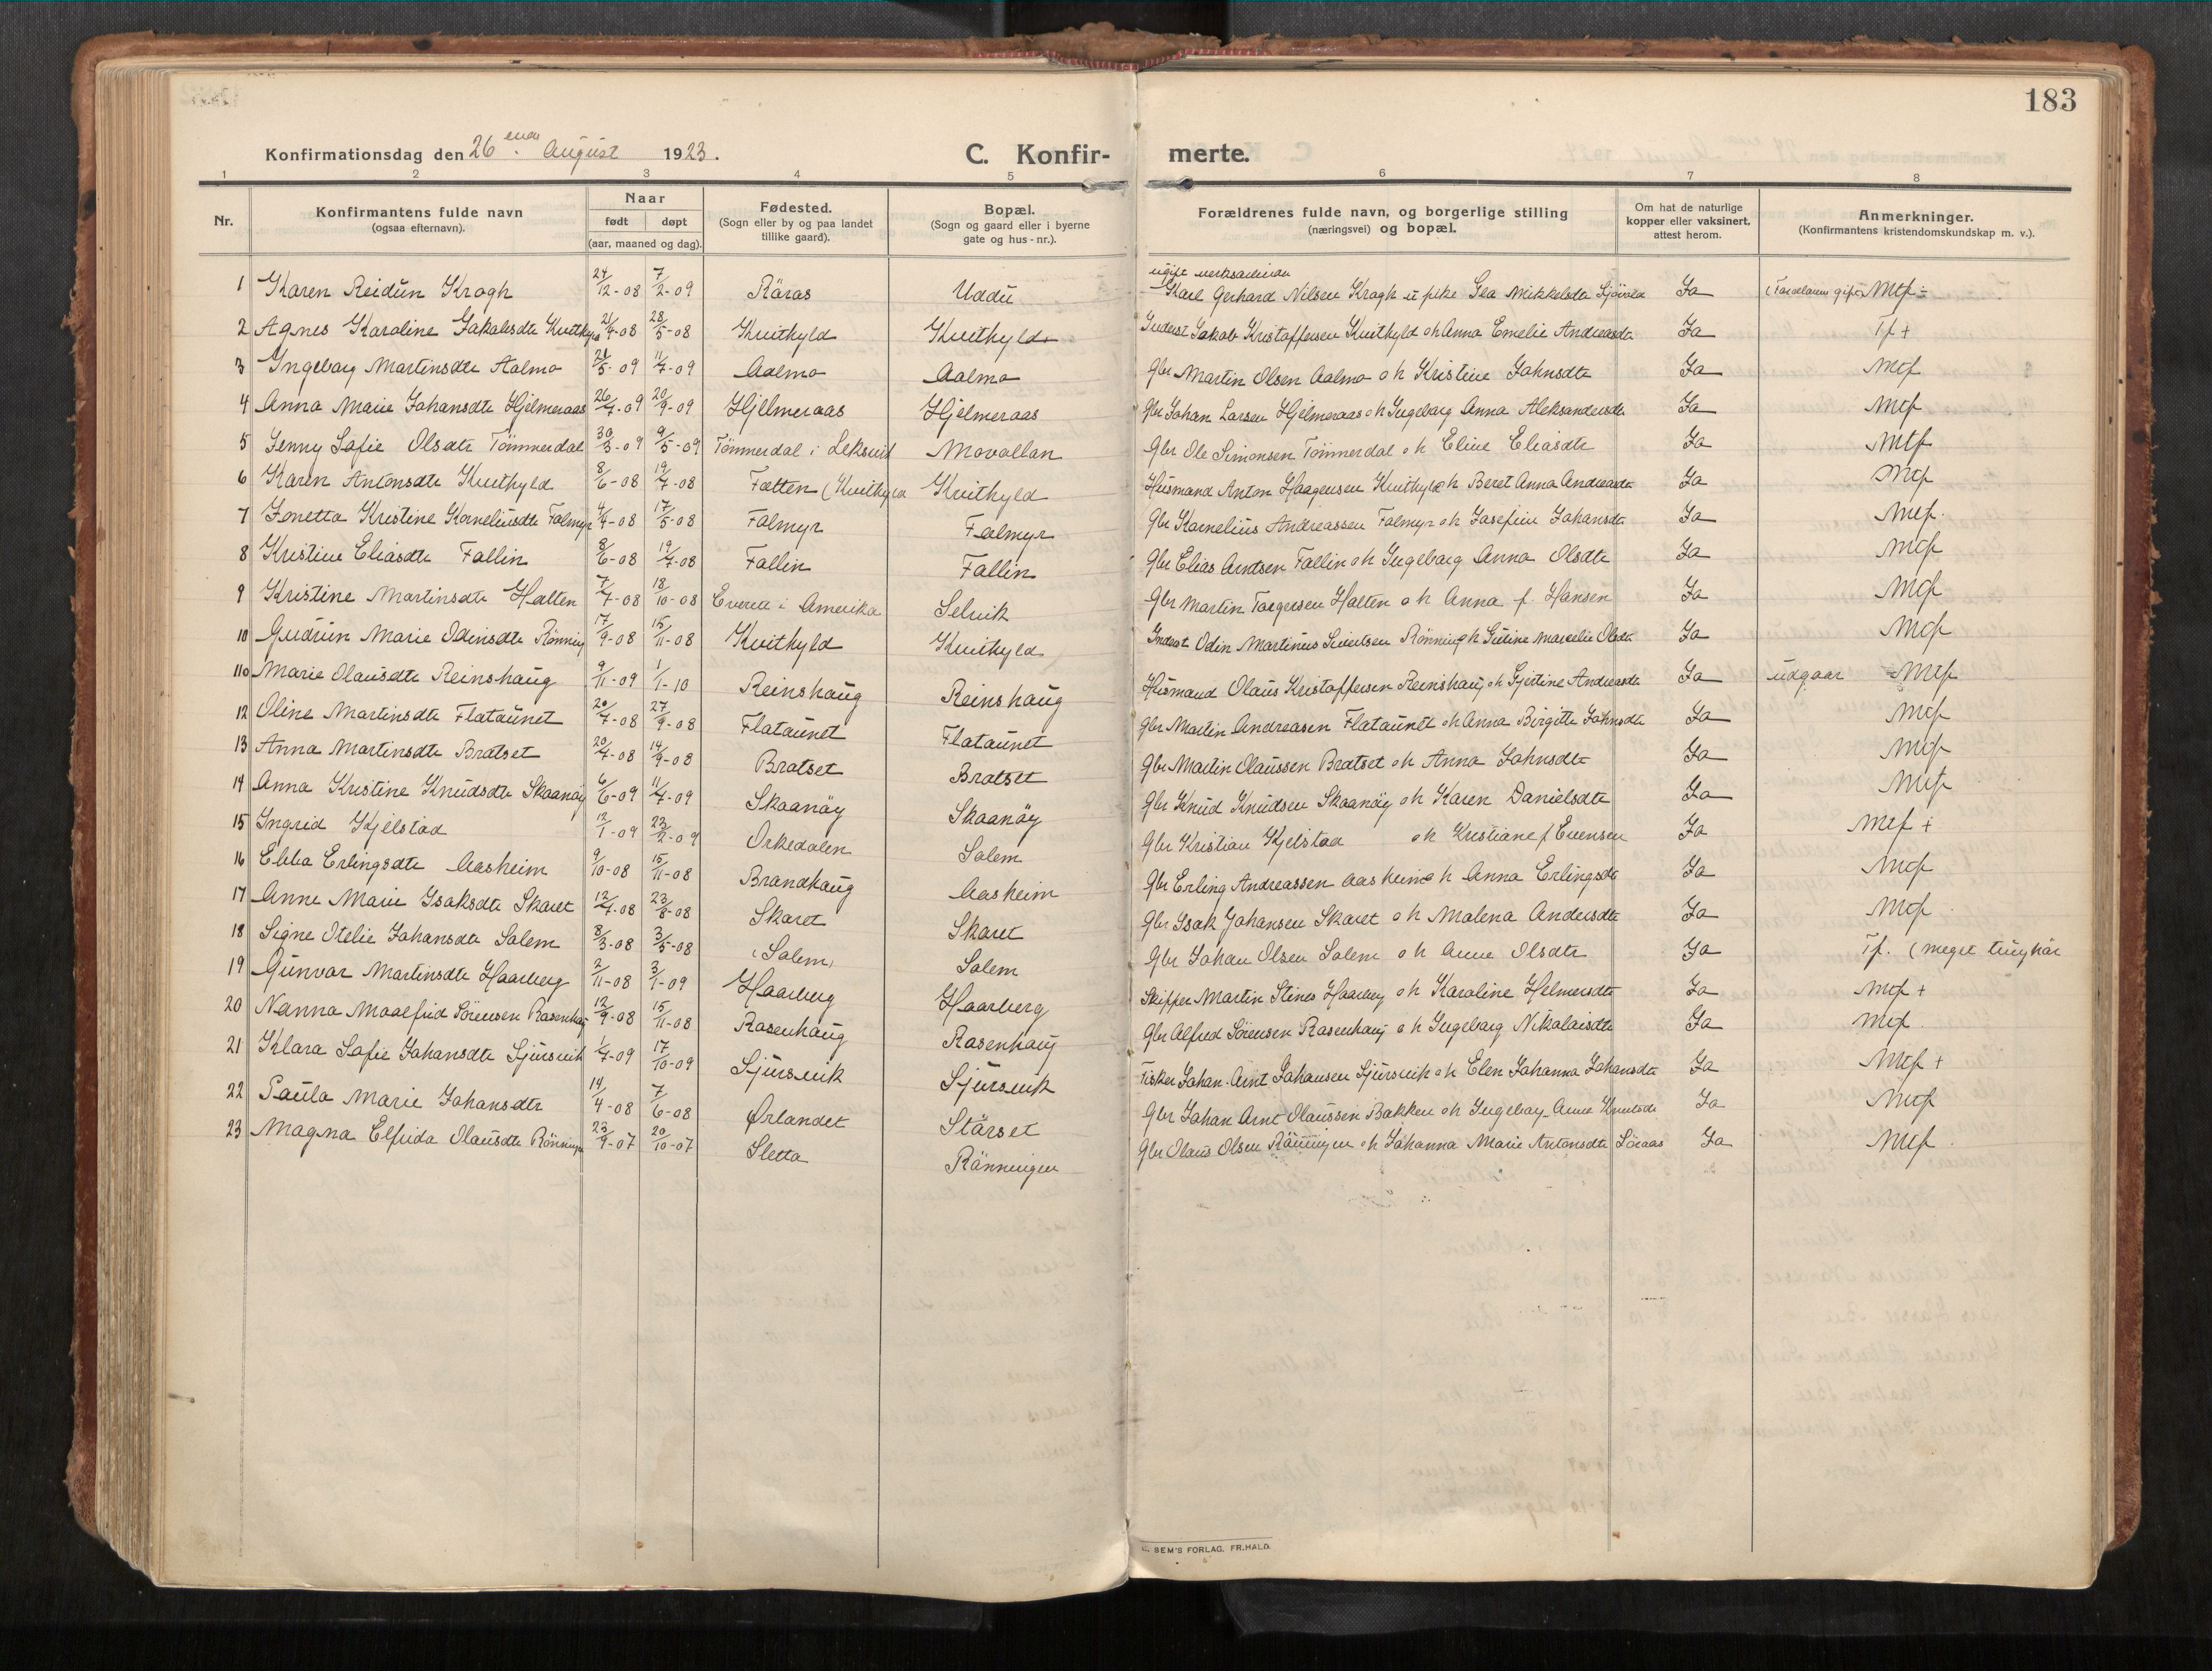 183
Konfirmationsdag den 26 August 1923.
C. Konfir- merte.
1 2 3 4 5 6 7 8
Nr.
Konfirmantens fulde navn (ogsaa efternavn).
Naar født døpt (aar, maaned og dag).
Fødested. (Sogn eller by og paa landet tillike gaard).
Bopæl. (Sogn og gaard eller i byerne gate og hus-nr.).
Forældrenes fulde navn, og borgerlige stilling (næringsvei) og bopæl.
Om hat de naturlige kopper eller vaksinert, attest herom.
Anmerkninger. (Konfirmantens kristendomskundskap m. v.).
1 Karen Reidun Krogh 24/12-08 7/2-09 Röras Uddu Karl Gerhard Nilsen Krogh u pike Gea Mikkelsdtr Ja Mtf
2 Agnes Karoline Jakobsdtr Kvithyld 21/4-08 28/5-08 Kvithyld Kvithyld Inderst Jakob Kristoffersen Kvithyld oh Anna Emelie Andreasdtr Ja Tf +
3 Ingeborg Martinsdtr Aalmo 21/5-09 11/7-09 Aalmo Aalmo Gbr Martin Olsen Aalmo oh Kristine Johnsdtr Ja Mtf
4 Anna Marie Johansdtr Hjelmeraas 26/7-09 20/9-09 Hjelmeraas Hjelmeraas Gbr Johan Larsen Hjelmeraas oh Ingeborg Anna Aleksandersdtr Ja Mtf
5 Jenny Sofie Olsdtr Tömmerdal 30/3-09 9/5-09 Tömmerdal i Leksvik Movollan Gbr Ole Simonsen Tömmerdal oh Eline Eliasdtr Ja Mtf
6 Karen Antonsdtr Kvithyld 8/6-08 19/7-08 Fætten (Kvithyld Kvithyld Husmand Anton Haagensen Kvithyld oh Beret Anna Andreasdtr Ja Mtf
7 Jonetta Kristine Korneliusdtr Falmyr 4/4-08 17/5-08 Falmyr Falmyr Gbr Kornelius Andreassen Falmyr oh Josefine Johansdtr Ja Mtf.
8 Kristine Eliasdtr Fallin 8/6-08 19/7-08 Fallin Fallin Gbr Elias Arntsen Fallin oh Ingeborg Anna Olsdtr Ja Mtf
9 Kristine Martinsdtr Halten 7/7-08 18/10-08 Everett i Amerika Selvik Gbr Martin Torgersen Halten oh Anna f. Hansen Ja Mtf
10 Gudrun Marie Odinsdtr Rönning 17/9-08 15/11-08 Kvithyld Kvithyld Inderst Odin Martinus Rönning oh Marselie Olsdtr Ja Mtf
11 Marie Olausdtr Reinshaug 9/11-09 1/1-10 Reinshaug Reinshaug Husmand Olaus Kristoffersen Reinshaug oh Gjertine Andreasdtr Ja udgaar Mtf
12 Oline Martinsdtr Flataunet 20/7-08 27/9-08 Flataunet Flataunet Gbr Martin Andreasen Flataunet oh Anna Birgitte Johnsdtr Ja Mtf
13 Anna Martinsdtr Bratset 20/7-08 14/9-08 Bratset Bratset Gbr Martin Olaussen Bratset oh Anna Johnsdtr Ja Mtf
14 Anna Kristine Knudsdtr Skaanöy 6/6-09 11/7-09 Skaanöy Skaanöy Gbr Knud Knudsen Skaanöy oh Karen Danielsdtr Ja Mtf
15 Ingrid Kjelstad 12/1-09 23/2-09 Orkedalen Salem Gbr Kristian Kjelstad oh Kristiane f Evensen Ja Mtf +
16 Ebba Erlingsdtr Aasheim 9/10-08 15/11-08 Brandhaug Aasheim Gbr Erling Andreassen Aasheim oh Anna Erlingsdtr Ja Mtf
17 Anne Marie Isaksdtr Skaret 12/7-08 23/8-08 Skaret Skaret Gbr Isak Johansen Skaret oh Malena Andersdtr Ja Mtf
18 Signe Otelie Johansdtr Salem 8/3-08 3/5-08 (Salem) Salem Gbr Johan Olsen Salem oh Anne Olsdtr Ja Tf. (meget tunghör
19 Gunvor Martinsdtr Haarberg 2/11-08 3/1-09 Haarberg Haarberg Skipper Martin Stines Haarberg oh Karoline Helmersdtr Ja Mtf +
20 Nanna Maalfrid Sörensen Rosenhaug 12/9-08 15/11-08 Rosenhaug Rosenhaug Gbr Alfred Sörensen Rosenhaug oh Ingeborg Nikolaisdtr Ja Mtf.
21 Klara Sofie Johansdtr Sjursvik 1/7-09 17/10-09 Sjursvik Sjursvik Fisker Johan Arnt Johansen Sjursvik oh Elen Johanna Johansdtr Ja Mtf +
22 Paula Marie Johansdtr 14/4-08 7/6-08 Ørlandet Störset Gbr Johan Arnt Olaussen Bakken oh Ingeborg Anna Knutsdtr Ja Mtf
23 Magna Elfrida Olausdtr Rönningen 23/9-07 20/10-07 Sletta Rönningen Gbr Olaus Olsen Rönningen oh Johanna Marie Antonsdtr Söraas Ja Mtf.
SEM'S FORLAG. FR. HALD.